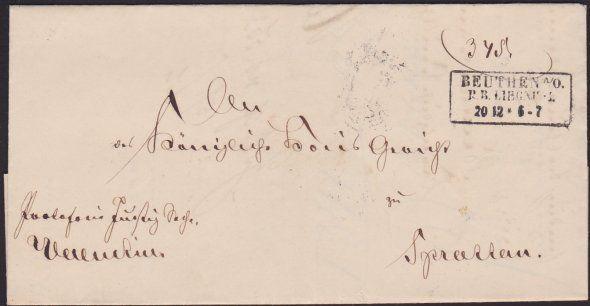 BEUTHEN a/O.
R.B. LIEGNITZ.
20 12 * 6-7
An
das Königliche Kreis Gericht
zu
Sprottau.
Portofreie Justiz Sache.